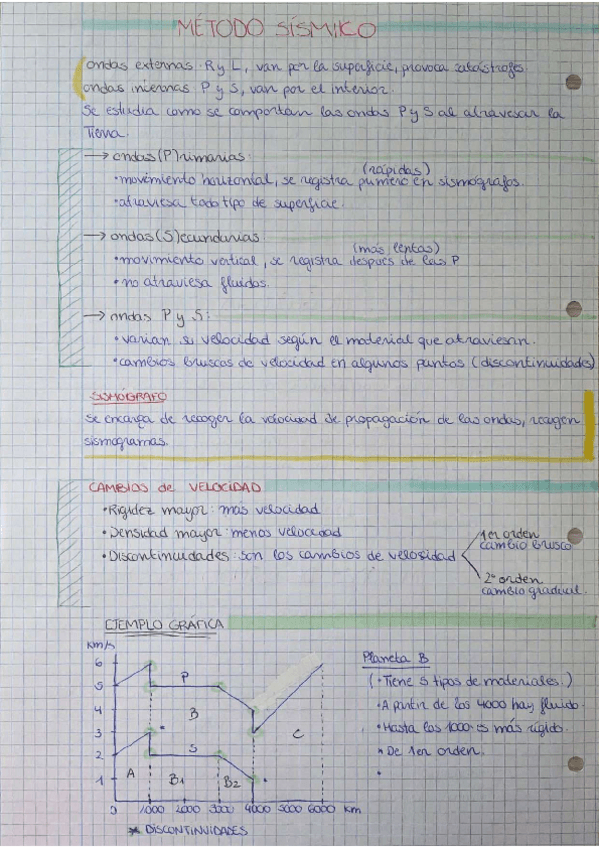 MÉTODO SÍSMICO
ondas externas: R y L, van por la superficie, provoca catástrofes.
ondas internas P y S, van por el interior.
Se estudia como se comportan las ondas P y S al atravesar la
Tierra.
→ ondas (P)rimarias:
(rápidas)
• movimiento horizontal, se registra primero en sismógrafos.
• atraviesa todo tipo de superficie.
→ ondas (S)ecundarias:
(mas lentas)
• movimiento vertical, se registra después de las P
• no atraviesa fluidos.
→ ondas P y S:
• varian su velocidad según el material que atraviesan.
• cambios bruscas de velocidad en algunos puntos (discontinuidades)
SISMÓGRAFO
Se encarga de recoger la velocidad de propagación de las ondas, recogen
sismogramas.
CAMBIOS de VELOCIDAD
• Rigidez mayor: mas velocidad
• Densidad mayor: menos velocidad
• Discontinuidades: son los cambios de velosidad
1er orden
cambio brusco
2º orden
cambio gradual.
EJEMPLO GRÁFICA
Km/s
6
5
4
3
2
1
P
B
S
C
A
B1
B2
0 1000 2000 3000 4000 5000 6000 Km
* DISCONTINUIDADES
Planeta B
(• Tiene 5 tipos de materiales.)
• A partir de los 4000 hay fluido.
• Hasta los 1000 es más rígido.
• De 1er orden.
•